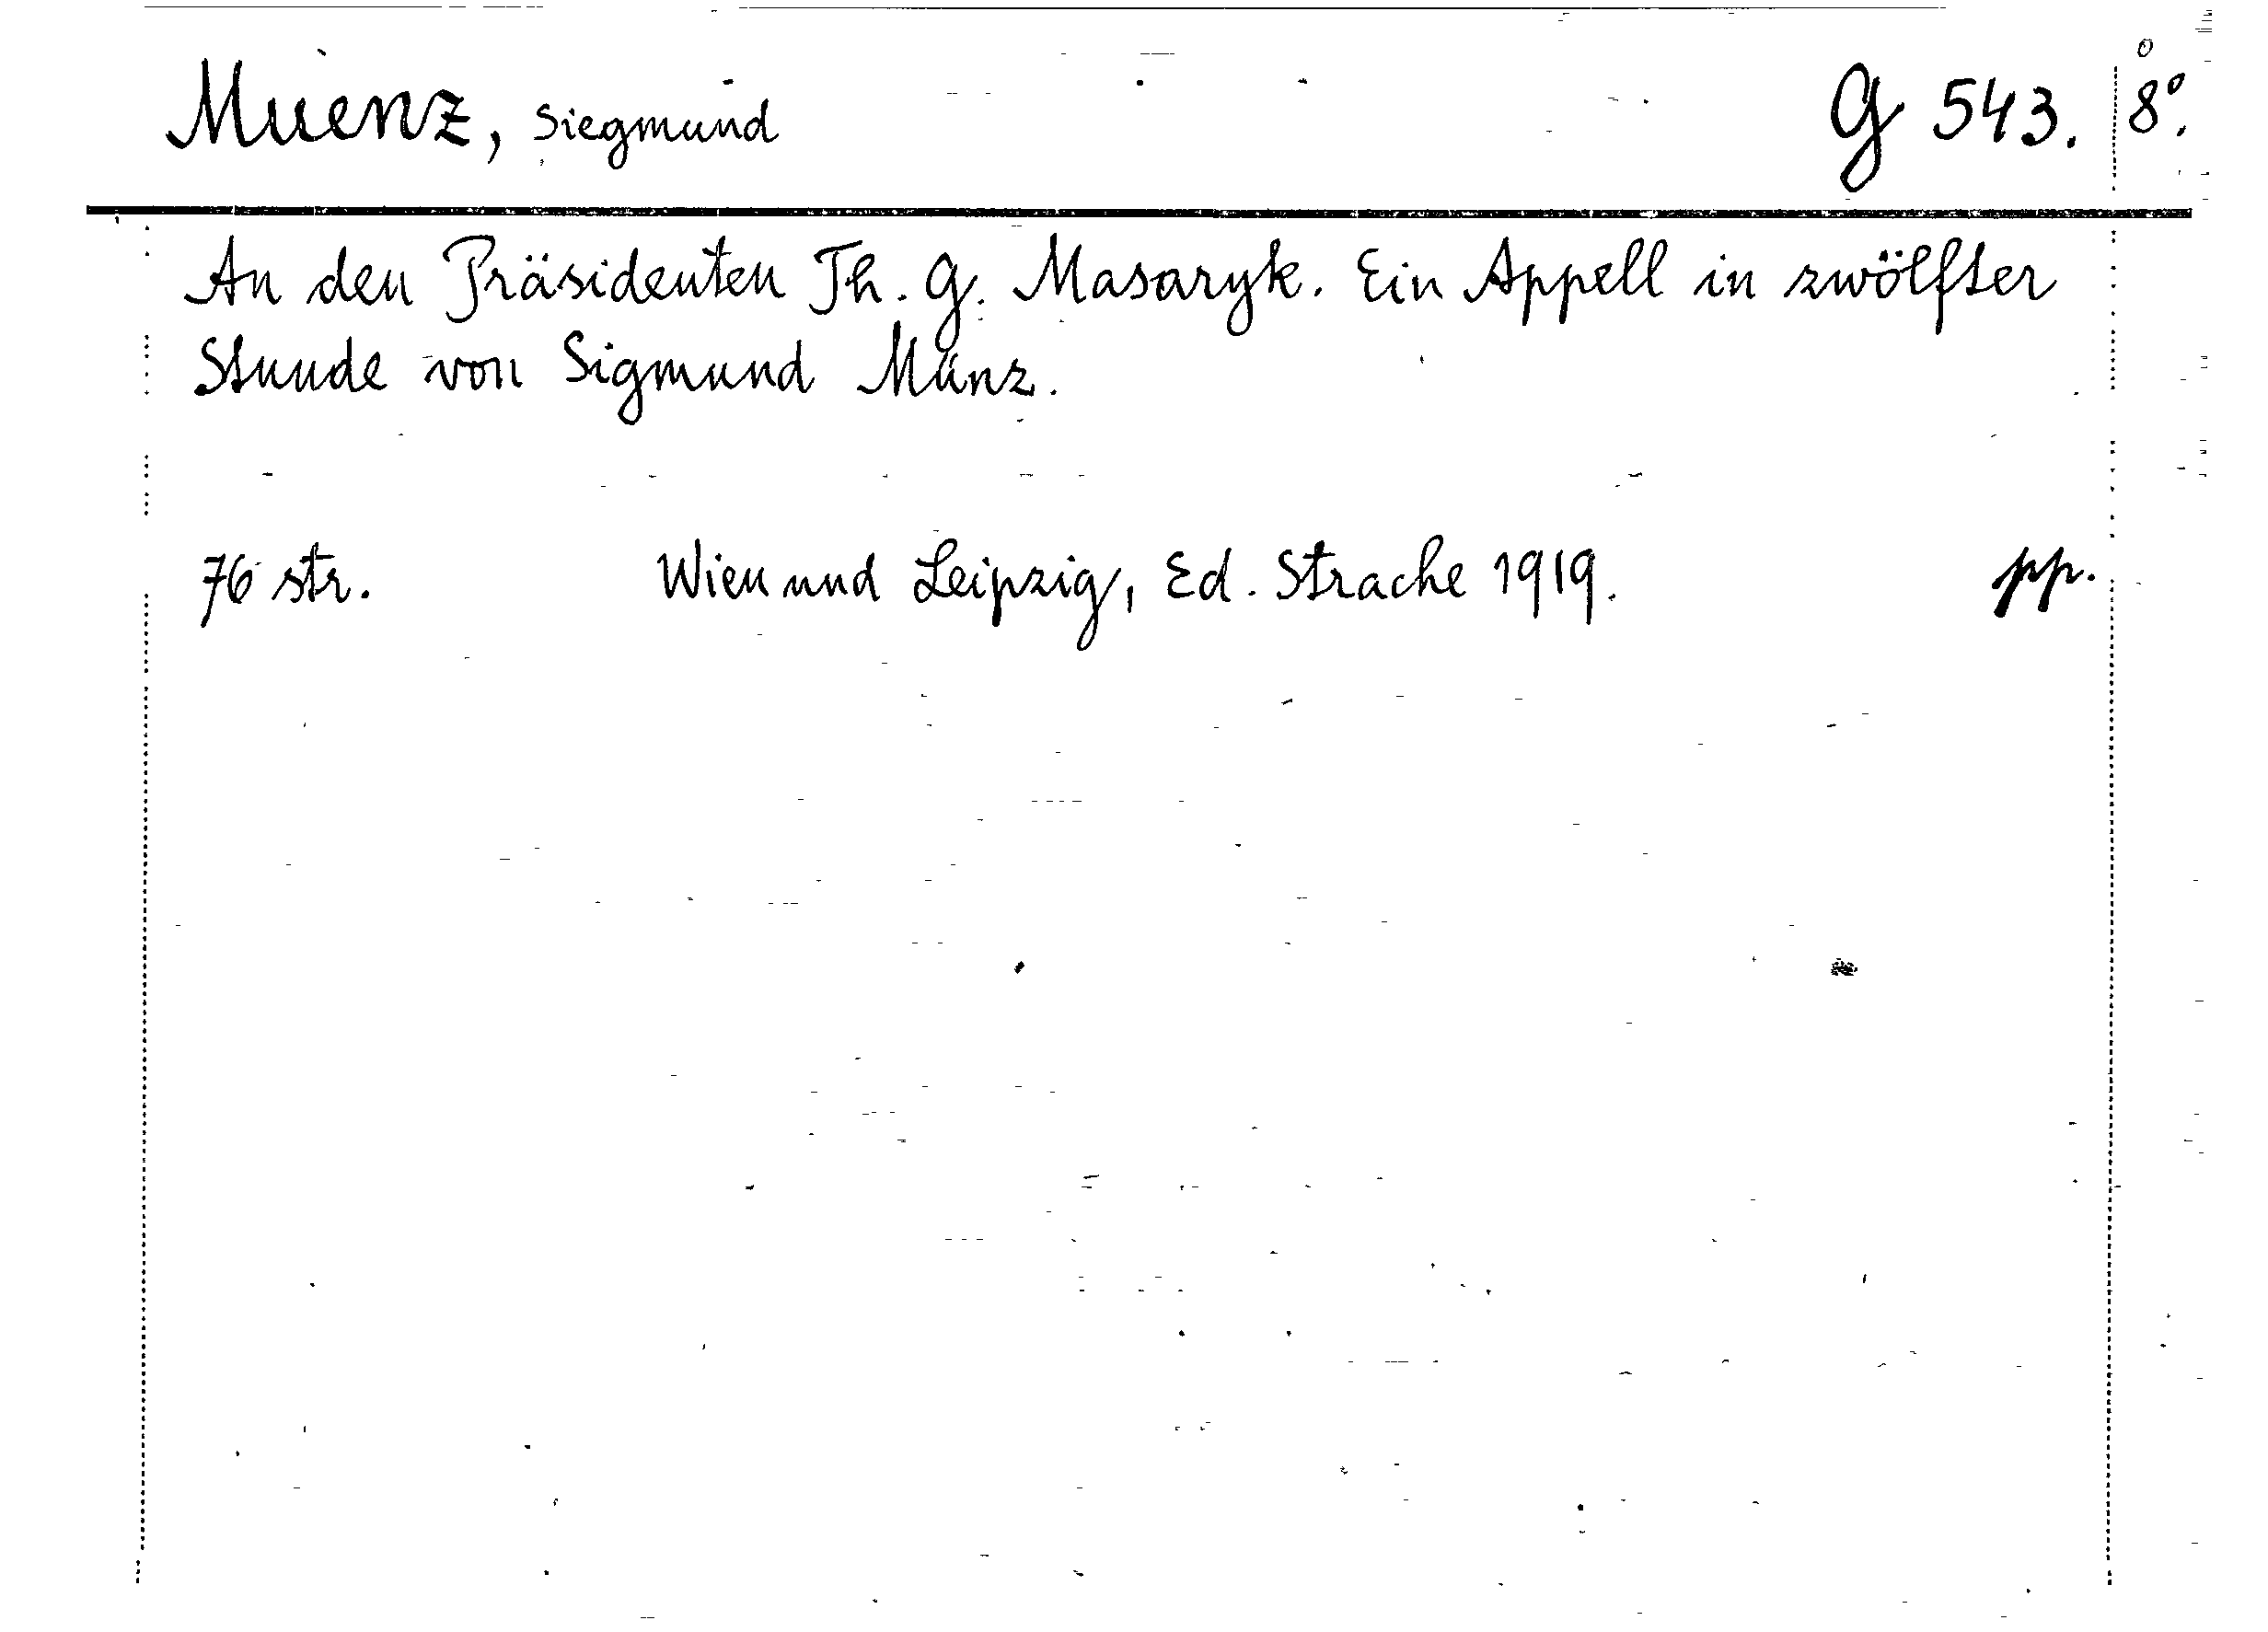 Muenz, Siegmund G 543. 8°.
An den Präsidenten Th. G. Masaryk. Ein Appell in zwölfter
Stunde von Sigmund Münz.
76 str. Wien und Leipzig, Ed. Strache 1919. pp.